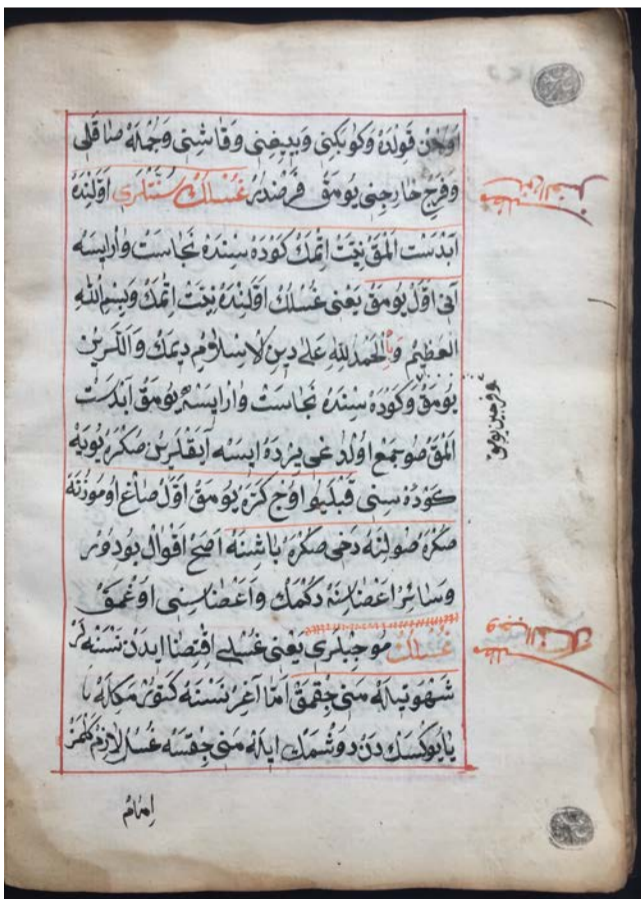 اوجن قولده وَكوبَكنى وَبيغِنى وَقاشِنى وَجُمله صاقلى
وَفرج خارجنى يُومَق فرضدر غُسلك سُنتلرى اوّلنده
آبدَست اَلمَق نِيّت اِتمَك كَودَه سِنده نَجاسَت وارايسه
آنى اوّل يُومَق يعنى غسلك اوّلنده نِيّت اتمَك وَبِسمِ اللهِ
العَظيمِ وَالحَمدُ لِلّهِ عَلى دينِ الاِسلامِ ديمَك وَاَللرين
يُومَق وَكَودَه سِنده نَجاسَت وارايسه يُومَق آبدَست
اَلمَق صو جمع اولدغى يرده ايسه آيقلرين صكره يُويه
كَودَه سِنى قبليو اوچ كره يُومَق اوّل صاغ اوموزنه
صكره صولنه دخى صكره باشنه اصح اقوال بودور
وَسائر اَعضاسنه دكمَك وَاَعضاسِنى اوغمَق
غُسلك مُوجِبلرى يعنى غسلى اقتضا ايدن نسنه لر
شهوتيله منى چقمق امّا آغر نسنه كتورمكله يا
يا يوكسكدن دوشمك ايله منى چقسه غسل لازم كلمز
امام
وفرجين يومق